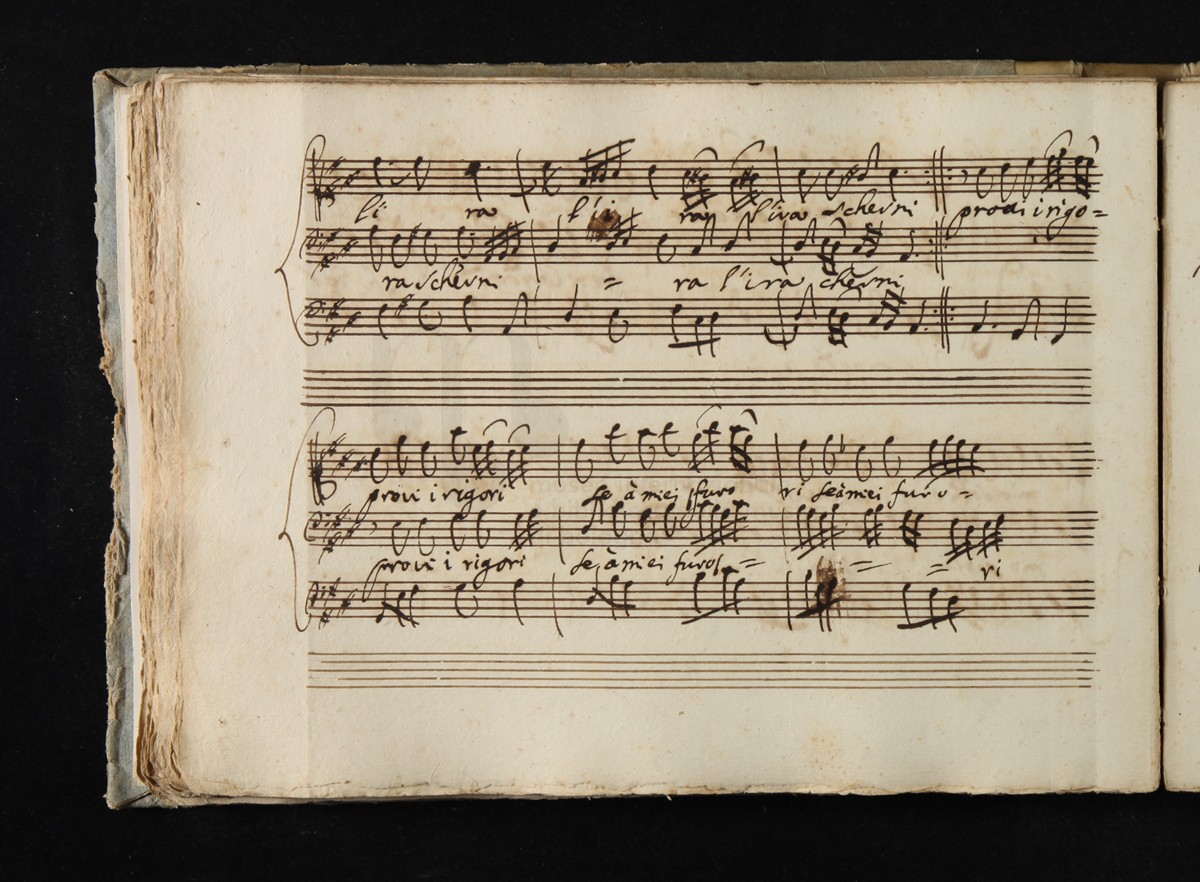 li ra l'i ra l'ira scherni provi i rigo=
ra scherni = ra l'ira scherni
provi i rigori se à miei furo ri se à miei furo=
provi i rigori se à miei furo = = = ri